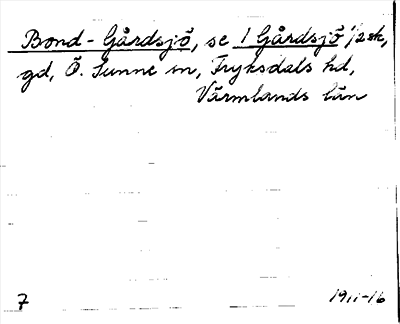 Bond-Gårdsjö, se 1 Gårdsjö 1/2 sk,
gd, Ö. Sunne sn, Fryksdals hd,
Värmlands län
7
1911-16